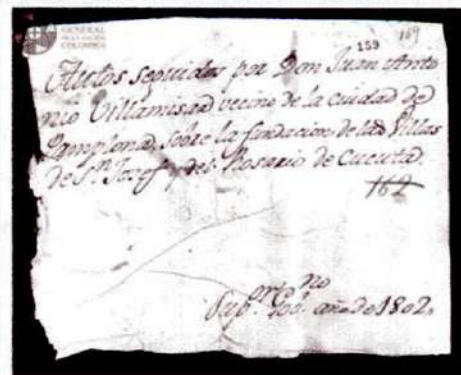 GENERAL
DE LA NACIÓN
COLOMBIA
159
159
Autos seguidos por Don Juan Anto
nio Villamisar vecino de la ciudad de
Pamplona, sobre la fundacion de las Villas
de Sn. Josef y del Rosario de Cucuta.
162
Supor. Gono. año de 1802.